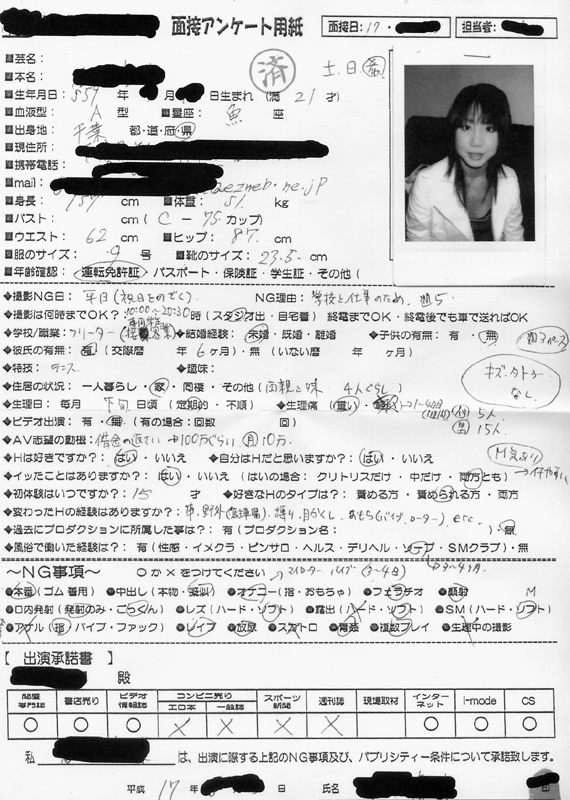 面接アンケート用紙 面接日: 17・ 担当者:
■芸名: 済 土、日
■本名:
■生年月日: S59 年 月 日生まれ (満 21 才)
■血液型: A 型 ■星座: 魚 座
■出身地: 千葉 都・道・府・県
■現住所:
■携帯電話:
■mail: ezweb.ne.jp
■身長: 157 cm ■体重: 51 kg
■バスト: cm ( C - 75 カップ)
■ウエスト: 62 cm ■ヒップ: 87 cm
■服のサイズ: 9 号 ■靴のサイズ: 23.5 cm
■年齢確認: 運転免許証・パスポート・保険証・学生証・その他(
◆撮影NG日: 平日(祝日をのぞく) NG理由: 学校と仕事のため 週5
◆撮影は何時までOK? 10:00〜20:30 時 (スタジオ出・自宅着) 終電までOK・終電後でも車で送ればOK
◆学校/職業: フリーター ◆結婚経験: 未婚・既婚・離婚 ◆子供の有無: 有・無
◆彼氏の有無: 有 (交際歴 年 6ヶ月)・無 (いない暦 年 ヶ月)
◆特技: テニス ◆趣味:
◆住居の状況: 一人暮らし・家・同棲・その他 (両親と妹 4人ぐらし) キズ・タトゥー なし
◆生理日: 毎月 下旬 日頃 (定期的・不順) 生理痛 (重い・
◆ビデオ出演: 有・無 (有の場合:回数 回) 5人 15人
◆AV志望の動機: 借金の返さい 100万ぐらい 月10万
◆Hは好きですか?: はい・いいえ ◆自分はHだと思いますか?: はい・いいえ M気あり
◆イッたことはありますか?: はい・いいえ (はいの場合: クリトリスだけ・中だけ・両方とも)
◆初体験はいつですか?: 15 才 ◆好きなHのタイプは?: 責める方・責められる方・両方
◆変わったHの経験はありますか?: 車、野外(駐車場)、縛り、目かくし、おもちゃ(バイブ、ローター) etc.
◆過去にプロダクションに所属した事は?: 有 (プロダクション名: )・無
◆風俗で働いた経験は?: 有 (性感・イメクラ・ピンサロ・ヘルス・デリヘル・ソープ・SMクラブ)・無
〜NG事項〜 ○か×をつけてください
●本番 (ゴム着用) ●中出し (本物・疑似) ●オナニー (指・おもちゃ) ●フェラチオ ●顔射 M
●口内発射 (発射のみ・ごっくん) ●レズ (ハード・ソフト) ●露出 (ハード・ソフト) ●SM (ハード・ソフト)
●アナル (指・バイブ・ファック) ●レイプ ●放尿 ●スカトロ ●青姦 ●複数プレイ ●生理中の撮影
【 出演承諾書 】
殿
問屋専門誌 書店売り ビデオ情報誌 コンビニ売り エロ本 一般誌 スポーツ新聞 週刊誌 現場取材 インターネット i-mode CS
○ ○ ○ × × × × ○ ○ ○
私 は、出演に際する上記のNG事項及び、パブリシティー条件について承諾致します。
平成 17 年 日 氏名 印